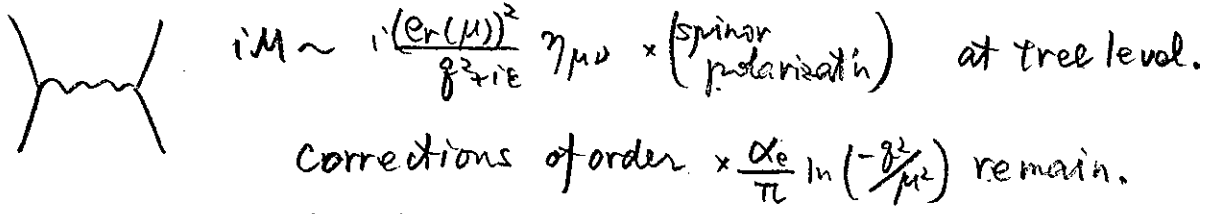 iM ~ i(e_r(μ))²/(q²+iε) η_μν × (spinor polarizat'n) at tree level.
corrections of order × α_e/π ln(-q²/μ²) remain.